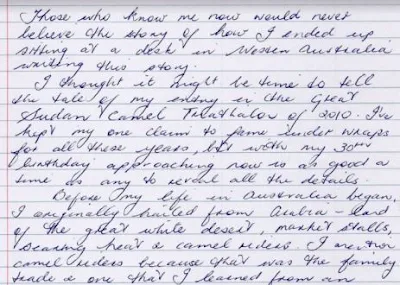 Those who know me now would never
believe the story of how I ended up
sitting at a desk in Western Australia
writing this story.
I thought it might be time to tell
the tale of my entry in the Great
Sudan Camel Triathalon of 2010. I've
kept my one claim to fame under wraps
for all these years, but with my 30th
birthday approaching now is as good a
time as any to reveal all the details.
Before my life in Australia began,
I originally hailed from Arabia - land
of the great white desert, market stalls,
searing heat & camel riders. I mention
camel riders because that was the family
trade & one that I learned from an